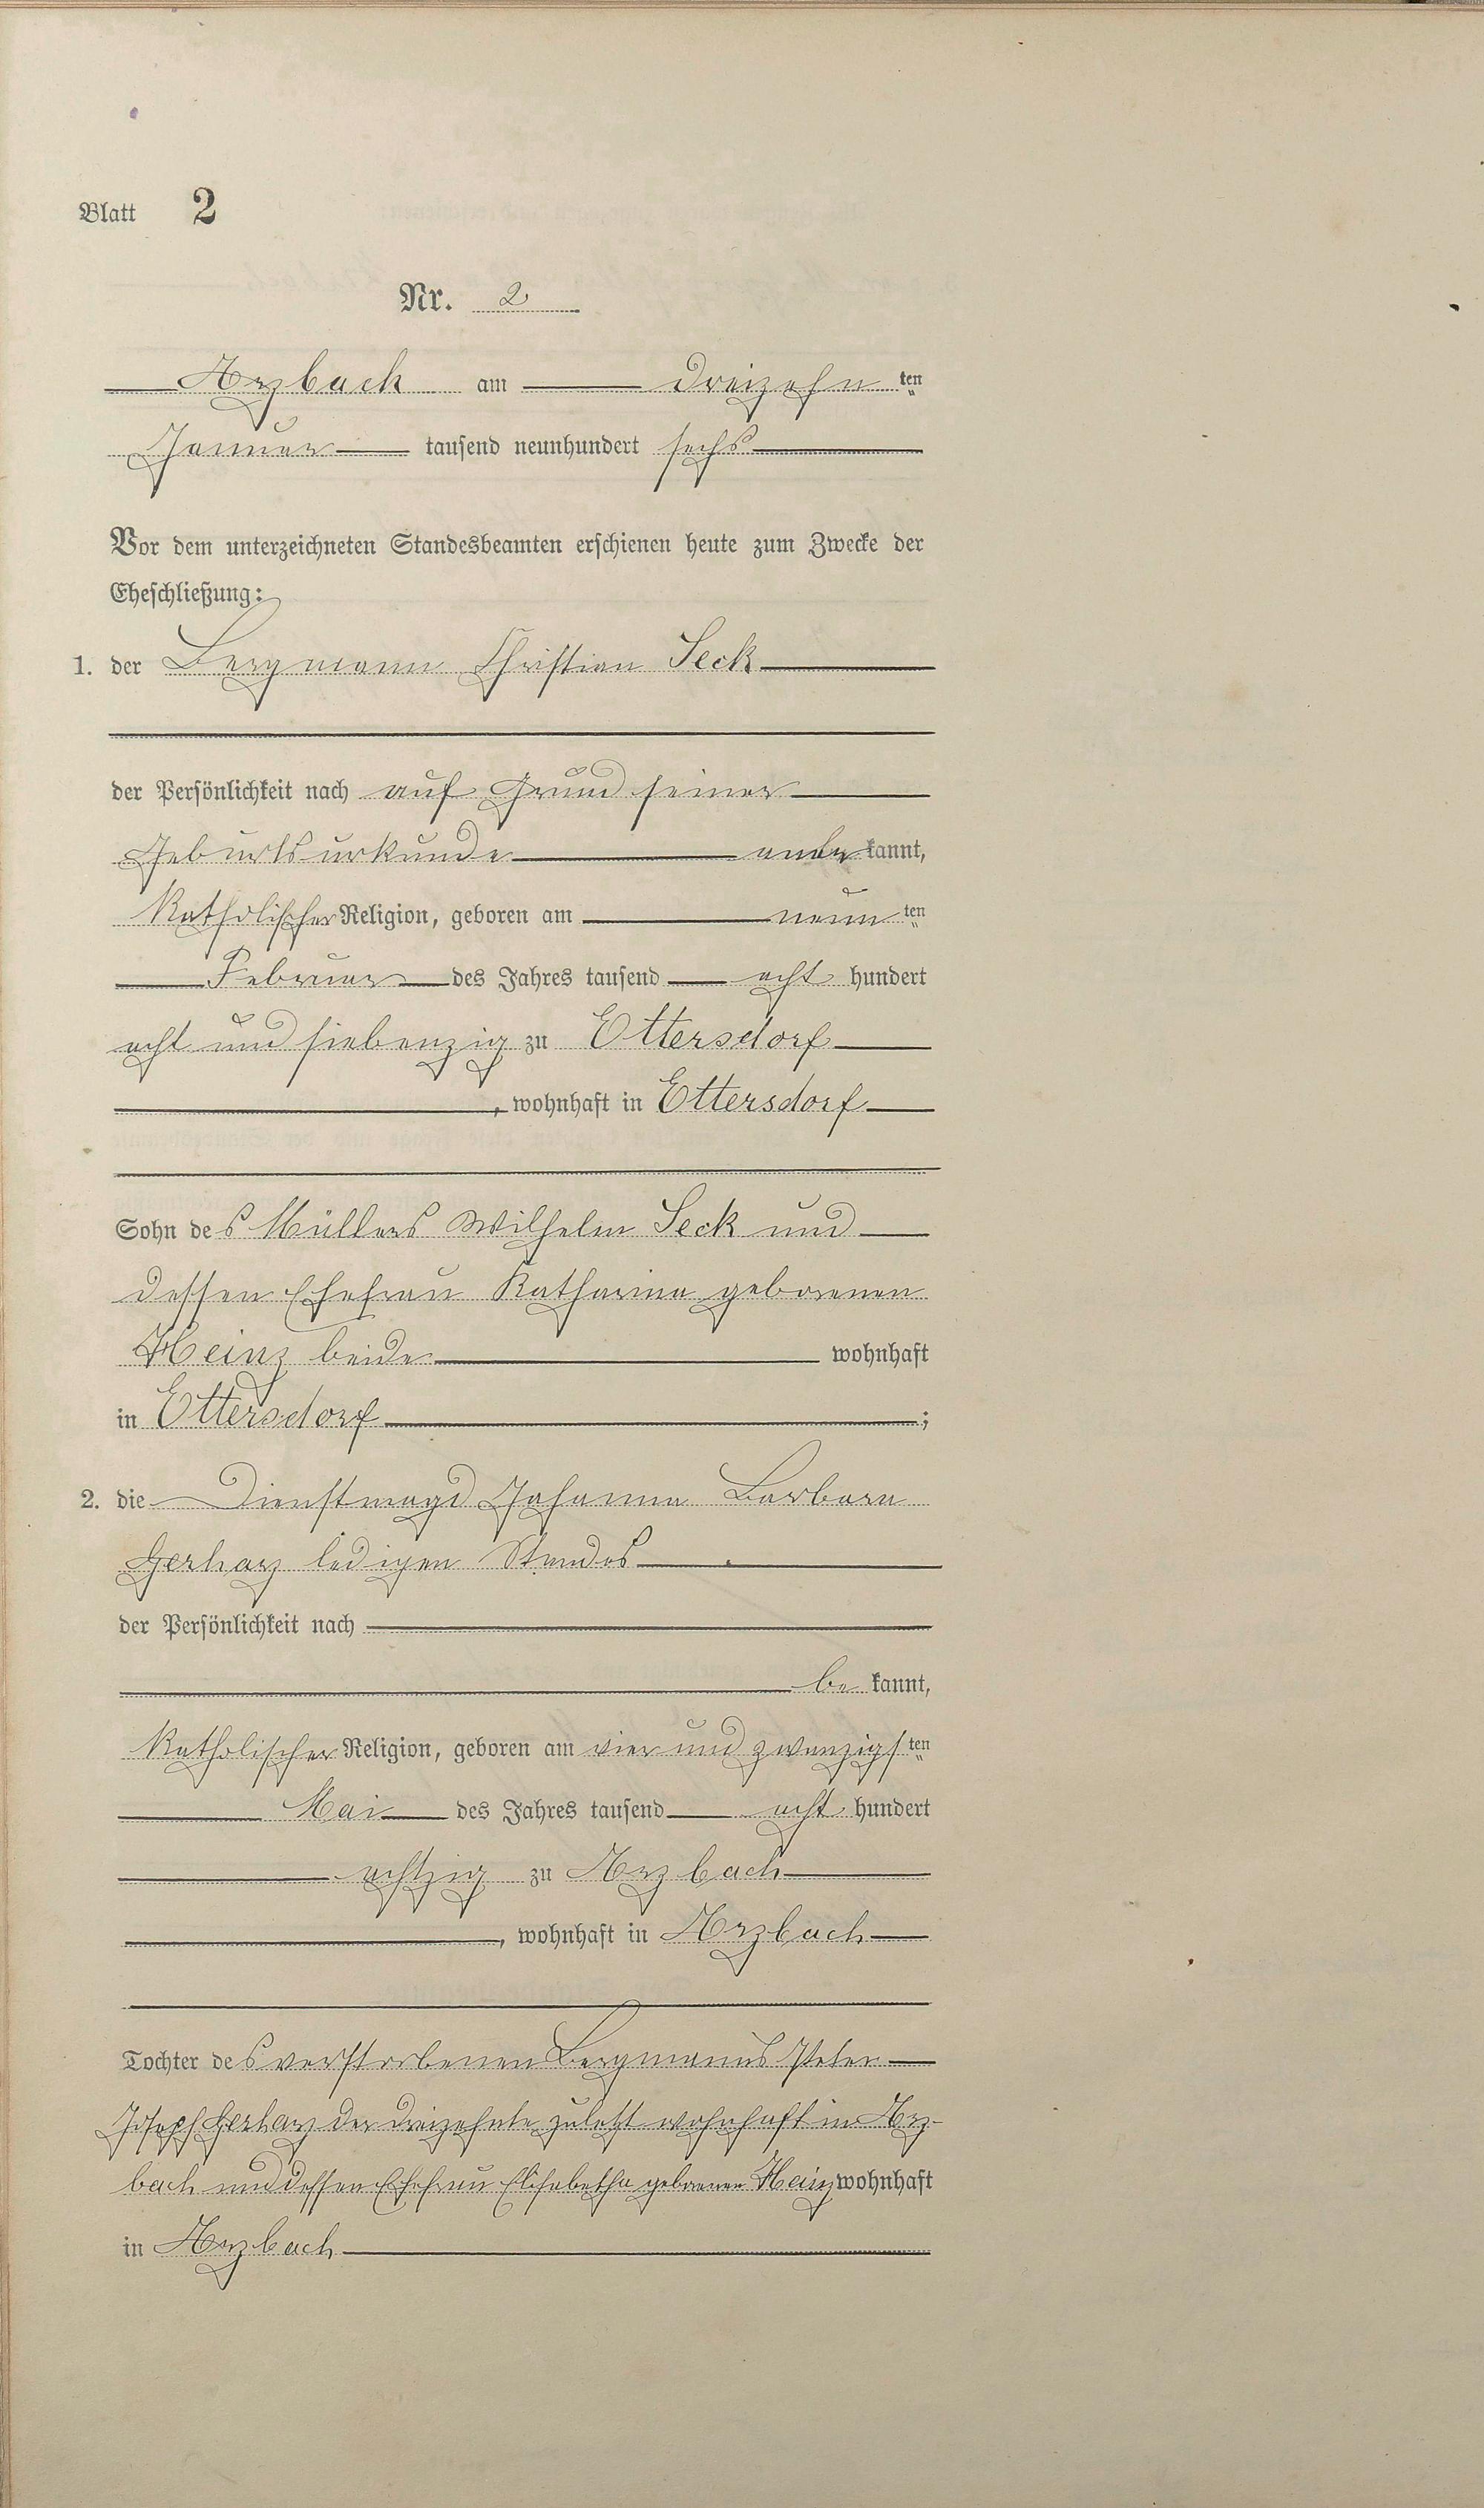 Blatt 2
Nr. 2
Arzbach am dreizehn ten
Januar tausend neunhundert sechs
Vor dem unterzeichneten Standesbeamten erschienen heute zum Zwecke der
Eheschließung:
1. der Bergmann Christian Seck
der Persönlichkeit nach auf Grund seiner
Geburtsurkunde aner kannt,
Katholischer Religion, geboren am neun ten
Februar des Jahres tausend acht hundert
acht und siebenzig zu Ettersdorf
, wohnhaft in Ettersdorf
Sohn des Müllers Wilhelm Seck und
dessen Ehefrau Katharina geborenen
Heinz beide wohnhaft
in Ettersdorf ;
2. die Dienstmagd Johanna Barbara
Gerharz ledigen Standes
der Persönlichkeit nach
be kannt,
Katholischer Religion, geboren am vier und zwanzigs ten
Mai des Jahres tausend acht hundert
achtzig zu Arzbach
, wohnhaft in Arzbach
Tochter des verstorbenen Bergmanns Peter
Joseph Gerharz der dreizehnte zuletzt wohnhaft in Arz-
bach und dessen Ehefrau Elisabetha geborenen Heinz wohnhaft
in Arzbach